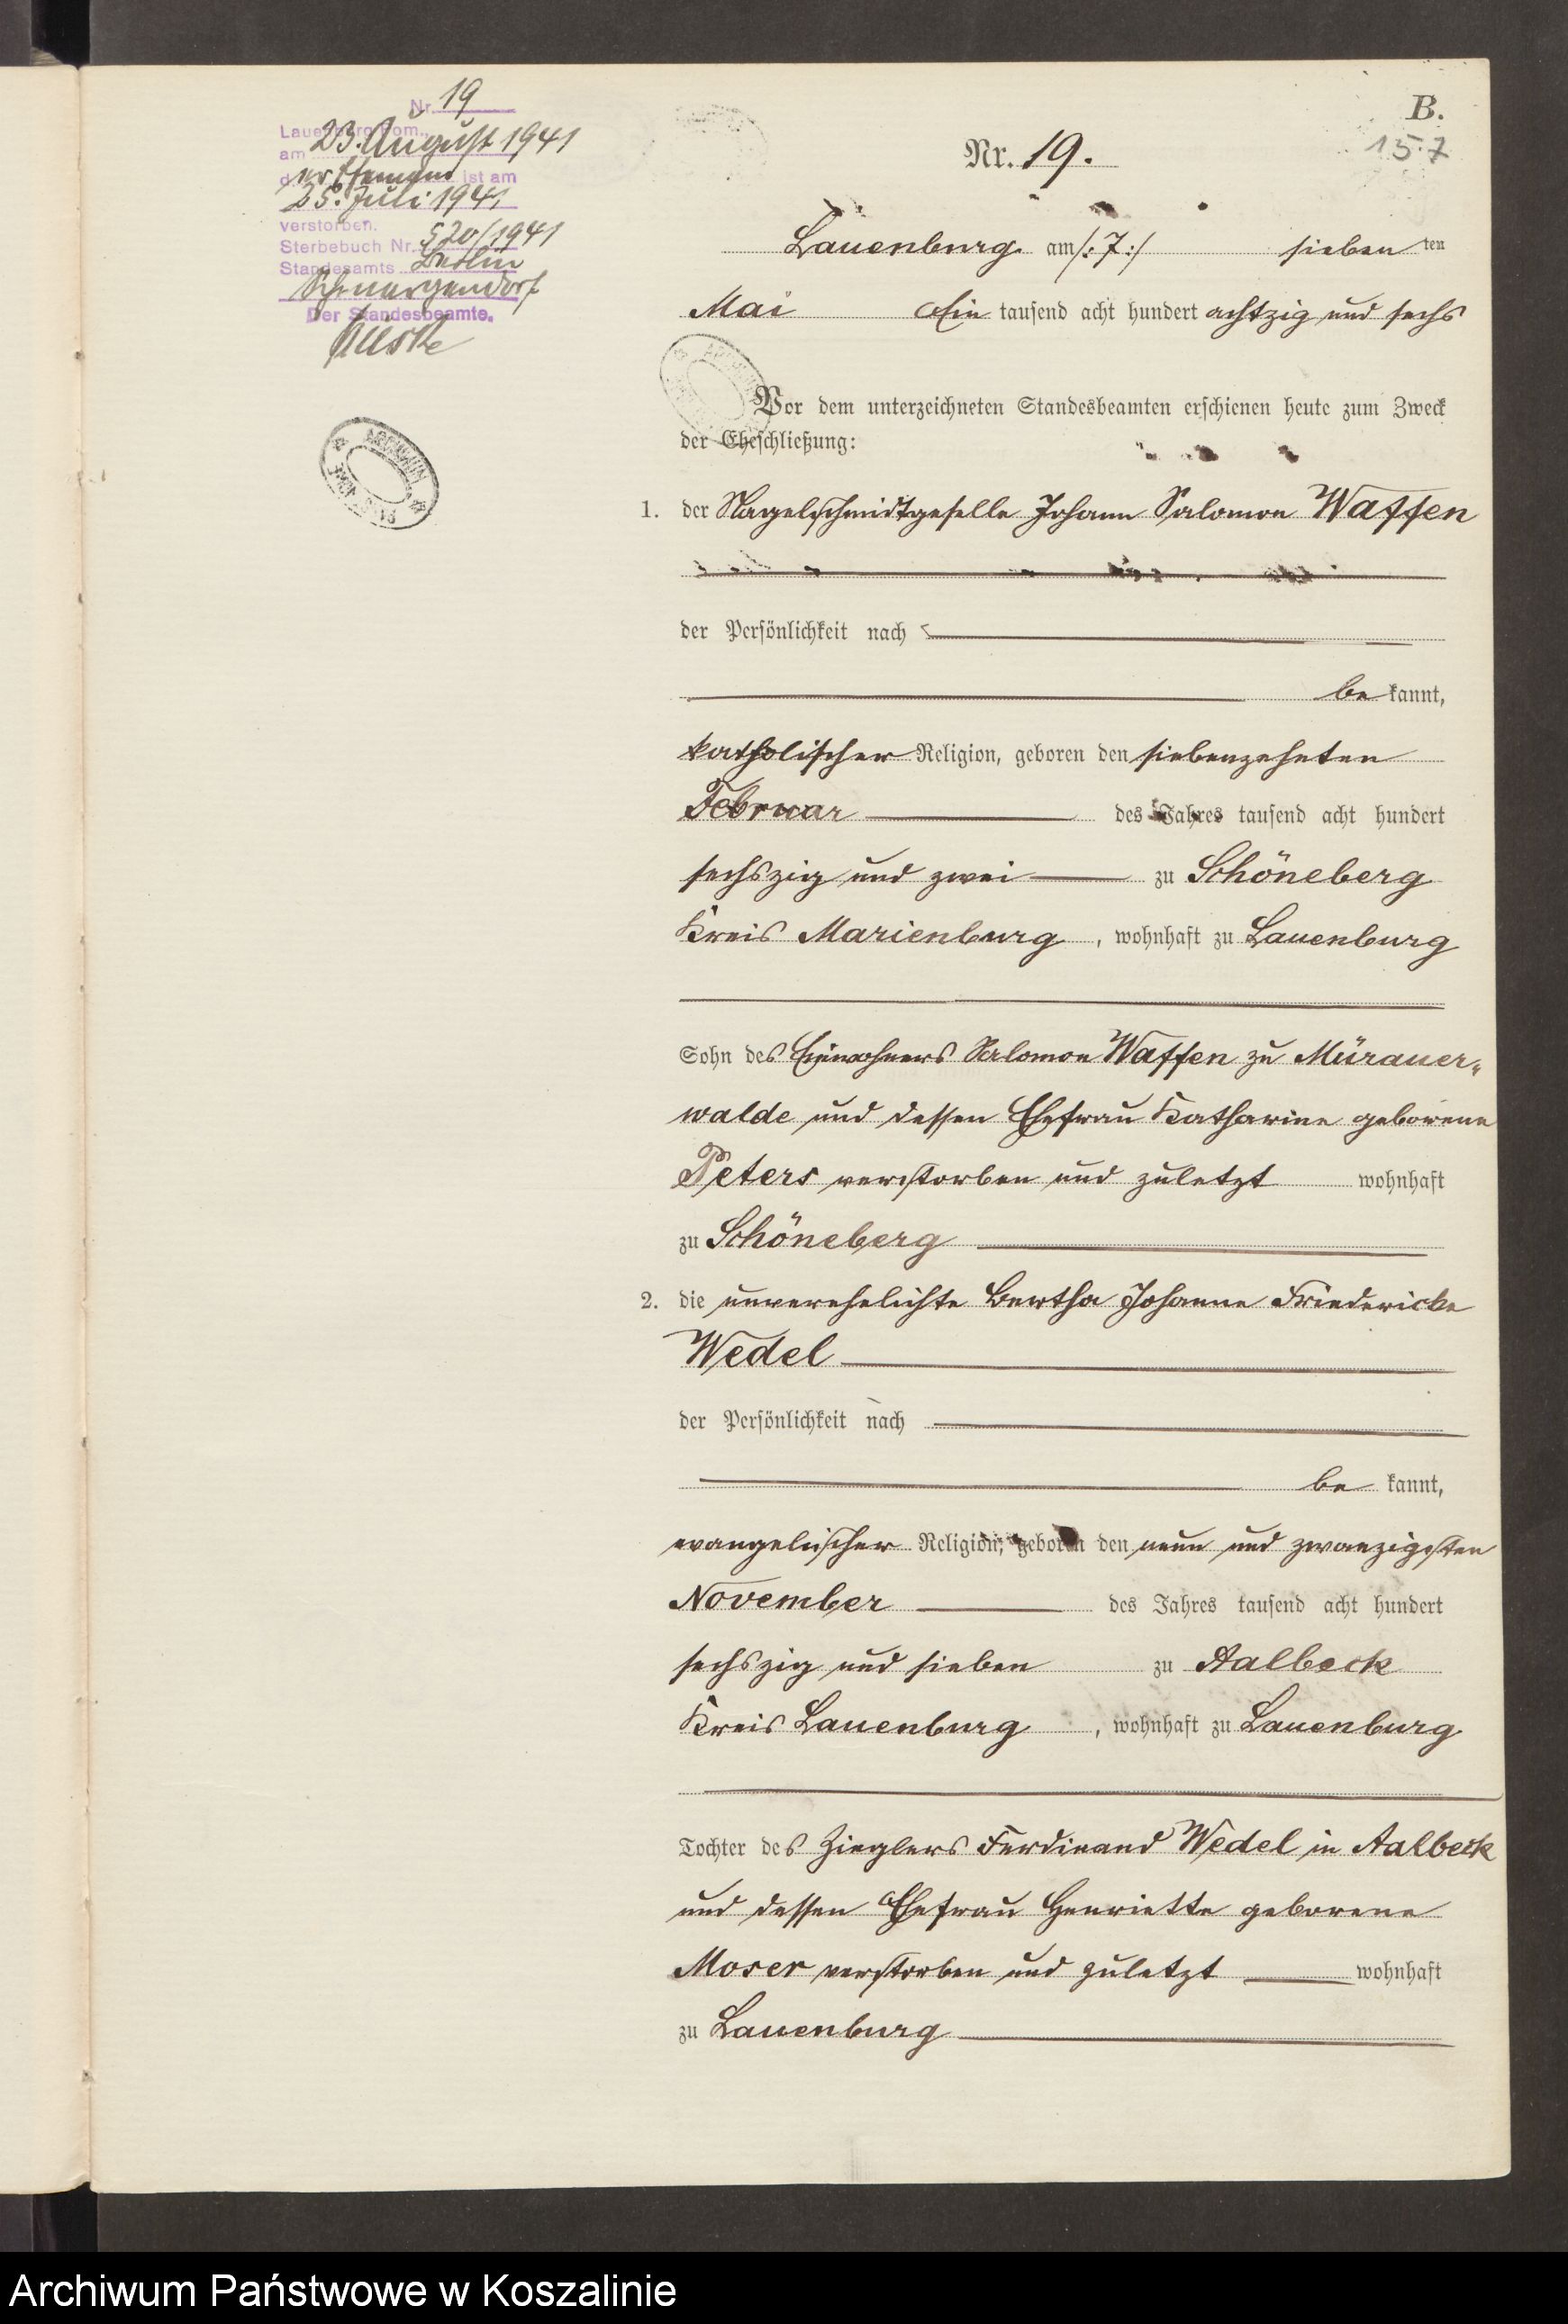 Nr. 19
Lauenburg Pom.,
am 23. August 1941
d er Ehemann ist am
25. Juli 1941
verstorben.
Sterbebuch Nr. 520/1941
Standesamts Berlin
Schmargendorf
Der Standesbeamte.
B.
157
Nr. 19.
Lauenburg am /:7:/ sieben ten
Mai Ein tausend acht hundert achtzig und sechs
Vor dem unterzeichneten Standesbeamten erschienen heute zum Zweck
der Eheschließung:
1. der Nagelschmidtgeselle Johann Salomon Waffen
der Persönlichkeit nach
be kannt,
katholischer Religion, geboren den siebenzehnten
Februar des Jahres tausend acht hundert
sechszig und zwei zu Schöneberg
Kreis Marienburg, wohnhaft zu Lauenburg
Sohn des Einwohners Salomon Waffen zu Mürauer-
walde und dessen Ehefrau Katharine geborene
Peters verstorben und zuletzt wohnhaft
zu Schöneberg
2. die unverehelichte Bertha Johanne Friedericke
Wedel
der Persönlichkeit nach
be kannt,
evangelischer Religion, geboren den neun und zwanzigsten
November des Jahres tausend acht hundert
sechszig und sieben zu Aalbeck
Kreis Lauenburg, wohnhaft zu Lauenburg
Tochter des Zieglers Ferdinand Wedel in Aalbeck
und dessen Ehefrau Henriette geborene
Moser verstorben und zuletzt wohnhaft
zu Lauenburg
Archiwum Państwowe w Koszalinie